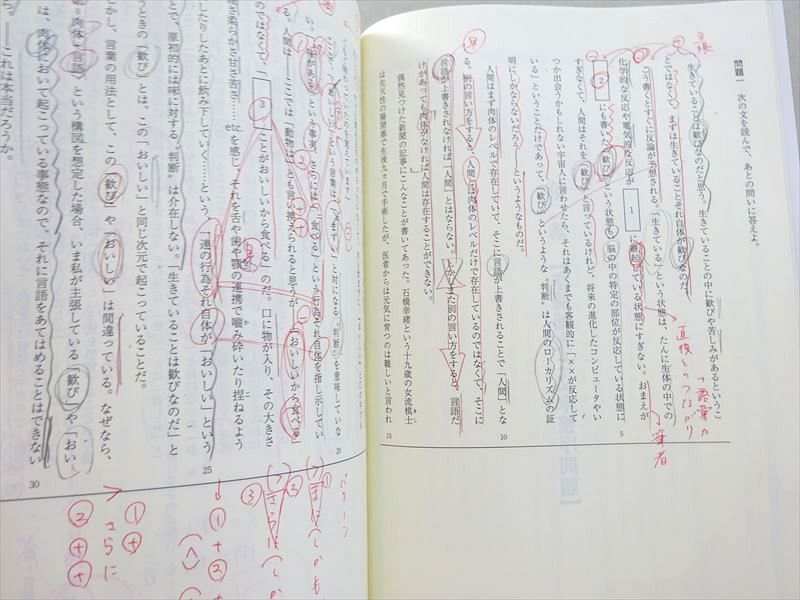 問題一 次の文を読んで、あとの問いに答えよ。
生きていることは歓びなのだと思う。生きていることの中に歓びや苦しみがあるというこ
とではなく、まずは生きていることそれ自体が歓びなのだ。
こう書くとすぐに反論が予想される。「生きている」という状態は、たんに生体の中での
化学的な反応や電気的な反応が 1 に継起している状態にすぎない。おまえが
2 にも書いた「歓び」という状態も、脳の中の特定の部位が反応している状態に
すぎなくて、人間はそれを「歓び」と言っているけれど、将来の進化したコンピュータやい
つか出会うかもしれない宇宙人に言わせたら、それはあくまでも客観的に「××が反応して
いる」ということだけであって、「歓び」というような〝判断〟は人間のローカリズムの証
明にしかならないだろう――というようなものだ。
人間はまず肉体のレベルで存在していて、そこに言語が上書きされることで「人間」とな
る。別の言い方をすると、人間とは肉体のレベルだけで存在しているのではなくて、そこに
言語が上書きされなければ「人間」とはならない。しかしまた別の言い方をすると、言語だ
けがあっても肉体がなければ人間は存在することができない。
偶然見つけた新聞の記事にこんなことが書いてあった。石橋幸緒という十九歳の女流棋士
は先天性の腸閉塞で生後九ヶ月で手術したが、医者からは元気に育つのは難しいと言われ
5
10
15
主張
直後とのつながり
+語彙力
筆者
ここで「おいしい」という言葉は、「まずい」と対になる〝判断〟を意味していな
い。
味があるという事実、さらには「食べる」という行為それ自体を指し示してい
る。人間は――ここでは「動物は」とも言い換えられると思うが――「おいしいから食べる」
のではなくて、「 3 ことがおいしいから食べる」のだ。口に物が入り、その大きさ
さ柔らかさ甘さ苦さ……etc.を感じ、それを舌や歯や顎の連携で噛み砕いたり捏ねるよう
したりしたあとに飲み下していく……という、一連の行為それ自体が「おいしい」という
とで、原初的には味に対する〝判断〟は介在しない。「生きていることは歓びなのだ」と
うときの「歓び」とは、この「おいしい」と同じ次元で起こっていることだ。
しかし、言葉の用法として、この「歓び」や「おいしい」は間違っている。なぜなら、
肉体+言語」という構図を想定した場合、いま私が主張している「歓び」や「おいし
は、肉体において起こっている事態なので、それに言語をあてはめることはできない
ら。――これは本当だろうか。
20
25
30
パターン
②
③
さらに
①+②
①+
さらに
②++